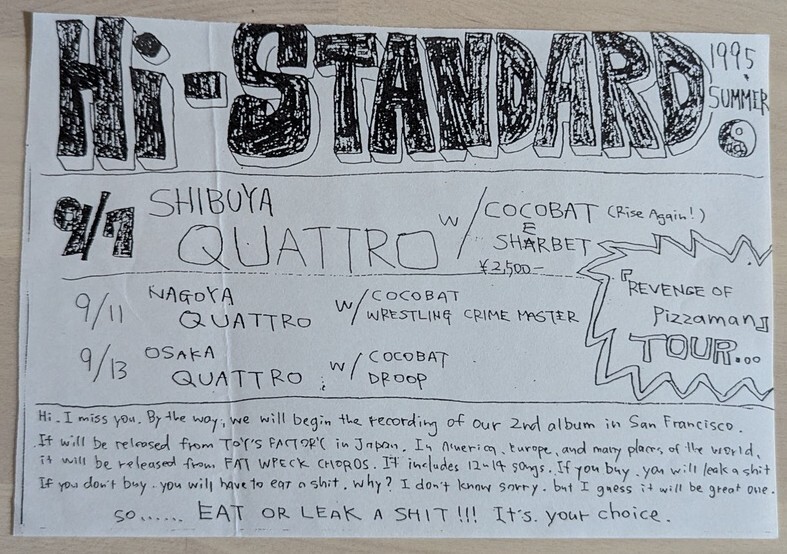 Hi-STANDARD
1995
SUMMER
9/7 SHIBUYA QUATTRO w/ COCOBAT (Rise Again!)
& SHARBET
¥2,500-
9/11 NAGOYA QUATTRO w/ COCOBAT
WRESTLING CRIME MASTER
9/13 OSAKA QUATTRO w/ COCOBAT
DROOP
『REVENGE OF
Pizzaman』
TOUR...
Hi. I miss you. By the way, we will begin the recording of our 2nd album in San Francisco.
It will be released from TOY'S FACTORY in Japan. In America, Europe, and many places of the world,
it will be released from FAT WRECK CHORDS. It includes 12~14 songs. If you buy. you will leak a shit
If you don't buy. you will have to eat a shit. Why? I don't know sorry. but I guess it will be great one.
so...... EAT OR LEAK A SHIT!!! It's. your choice.